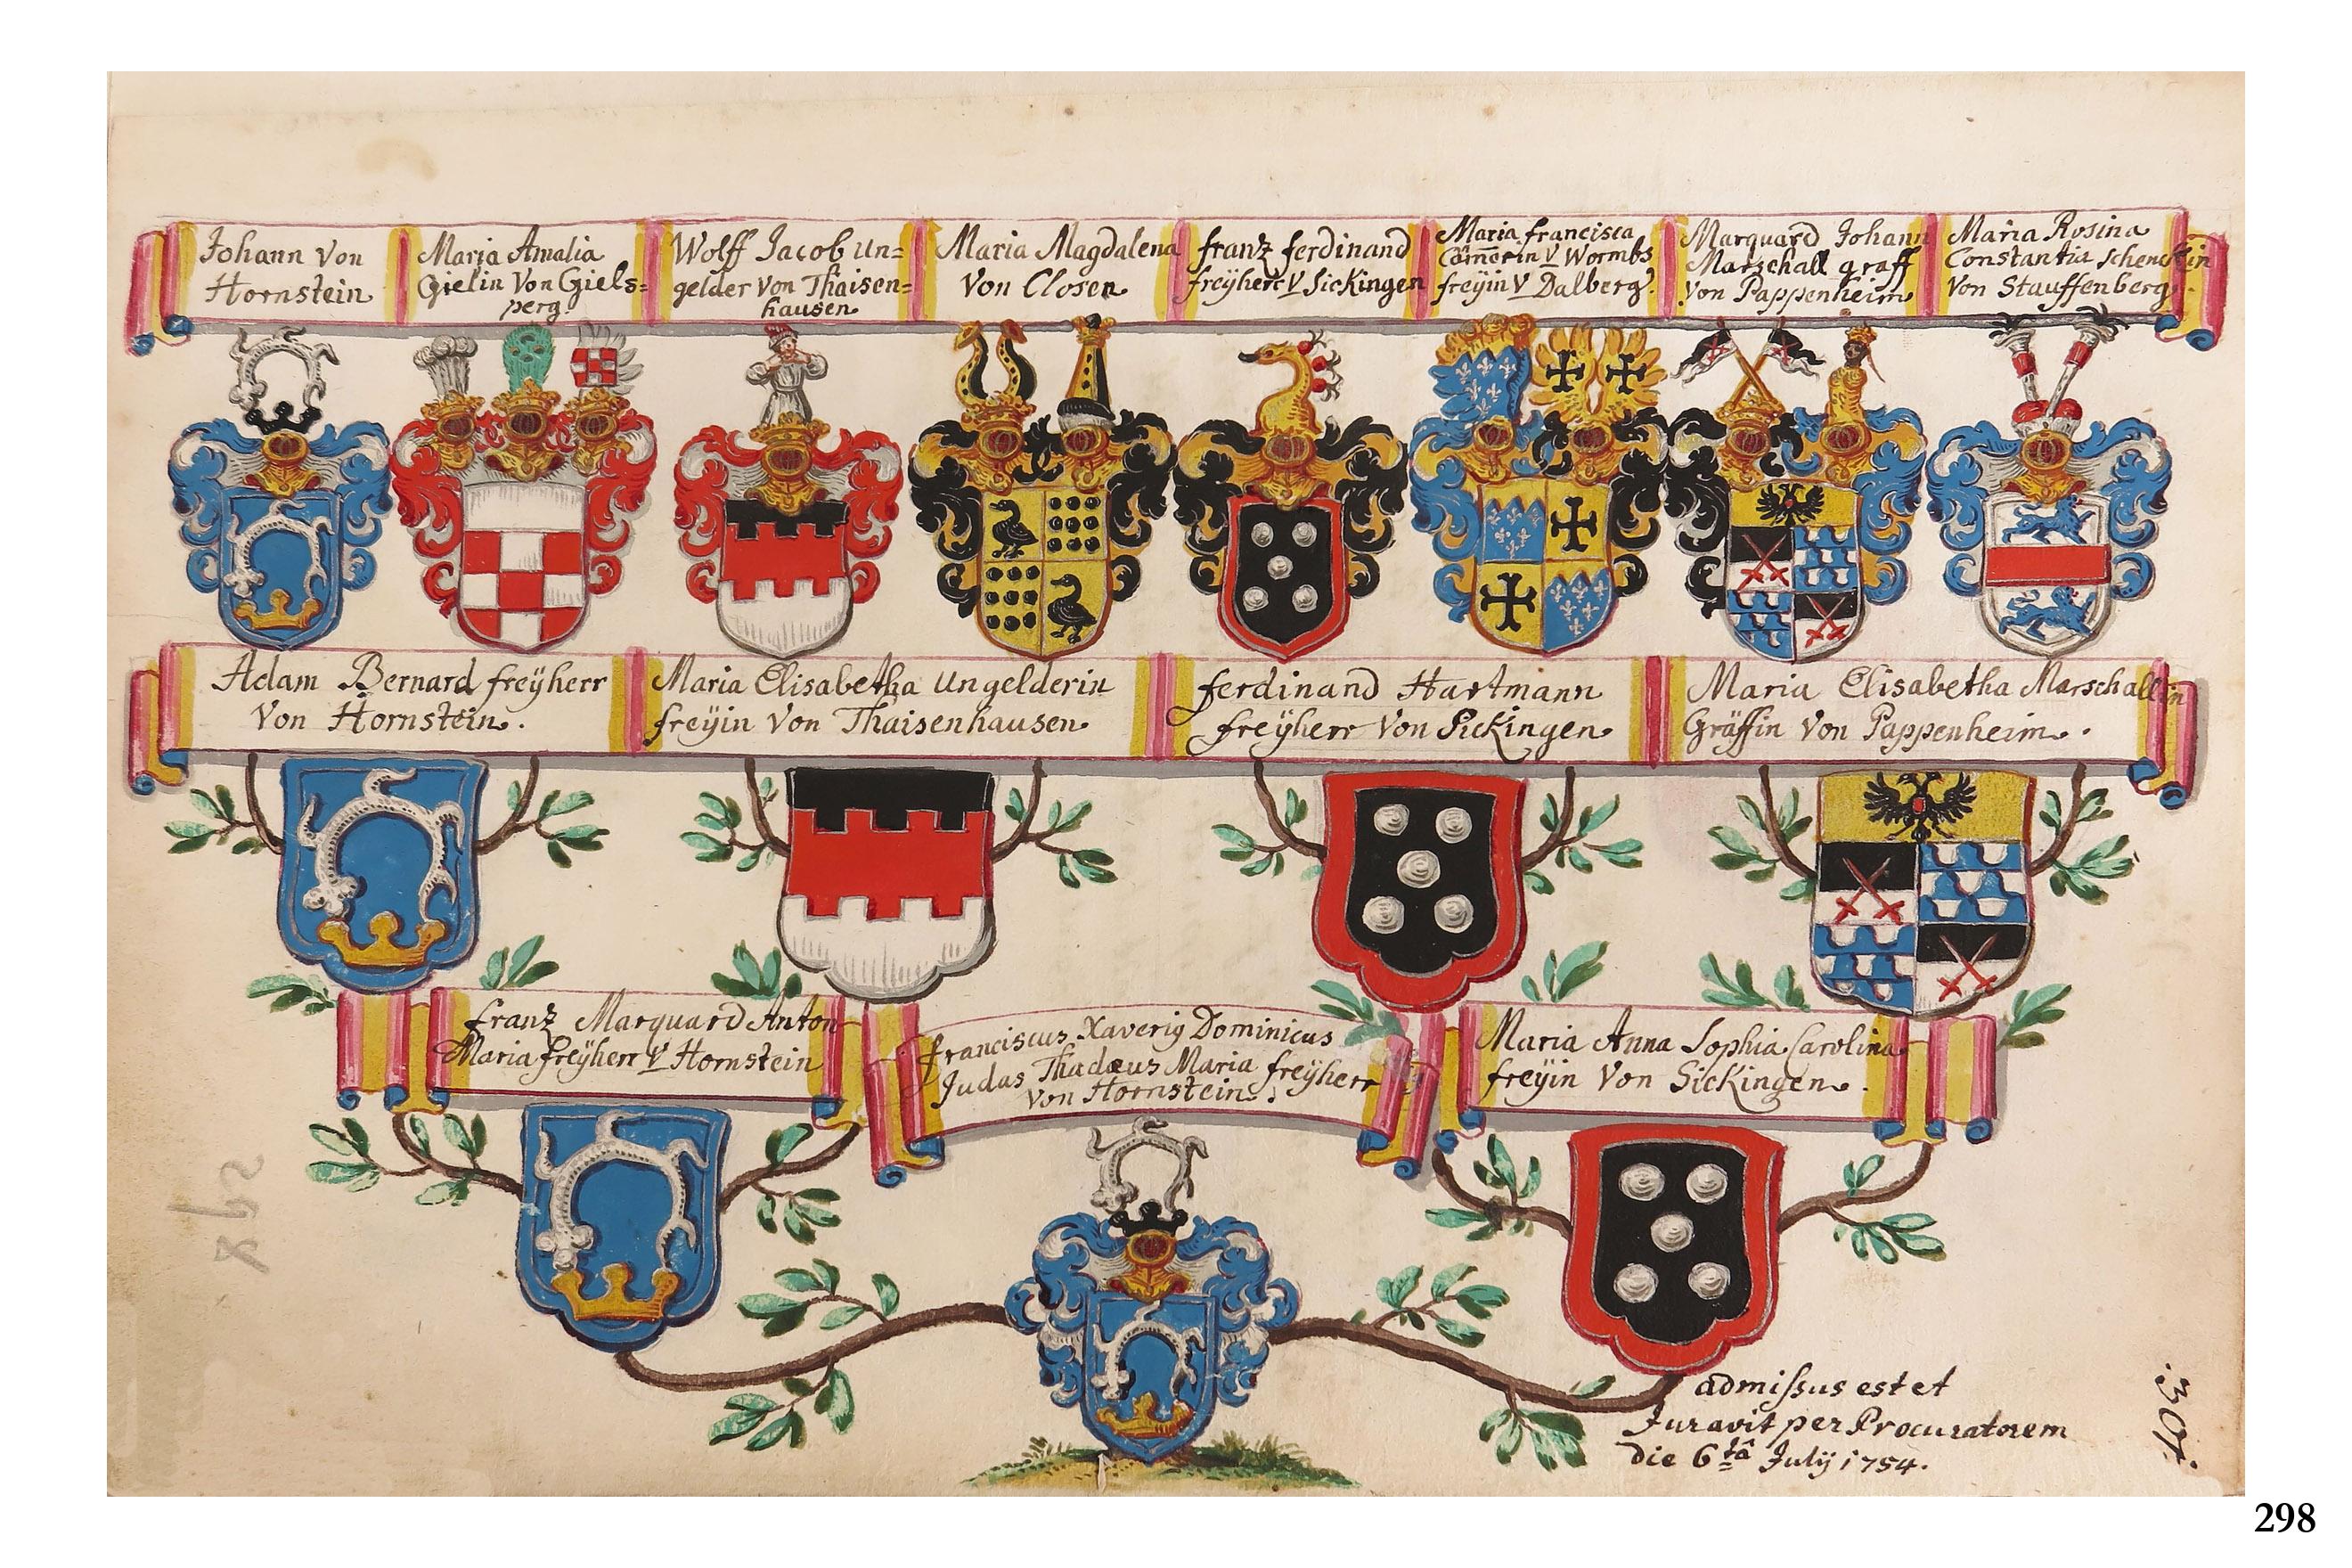 Johann Von
Hornstein
Maria Amalia
Gielin Von Giels=
perg.
Wolff Jacob Un=
gelder Von Thaisen=
hausen
Maria Magdalena
Von Closen
franz ferdinand
freÿherr V Sickingen
Maria francisca
Cam̄erin V Wormbs
freÿin V Dalberg.
Marquard Johann
Marschall graff
Von Pappenheim
Maria Rosina
Constantia Schenckin
Von Stauffenberg.
Adam Bernard freÿherr
Von Hornstein.
Maria Elisabetha Ungelderin
freÿin Von Thaisenhausen
ferdinand Hartmann
freÿherr Von Sickingen
Maria Elisabetha Marschallin
Gräffin Von Pappenheim.
franz Marquard Anton
Maria freÿherr V Hornstein
franciscus Xaveriꝯ Dominicus
Judas Thadæus Maria freÿherr
Von Hornstein.
Maria Anna Sophia Carolina
freÿin Von Sickingen.
admiſsus est et
Juravit per Procuratorem
die 6tâ Julÿ 1754.
307.
298